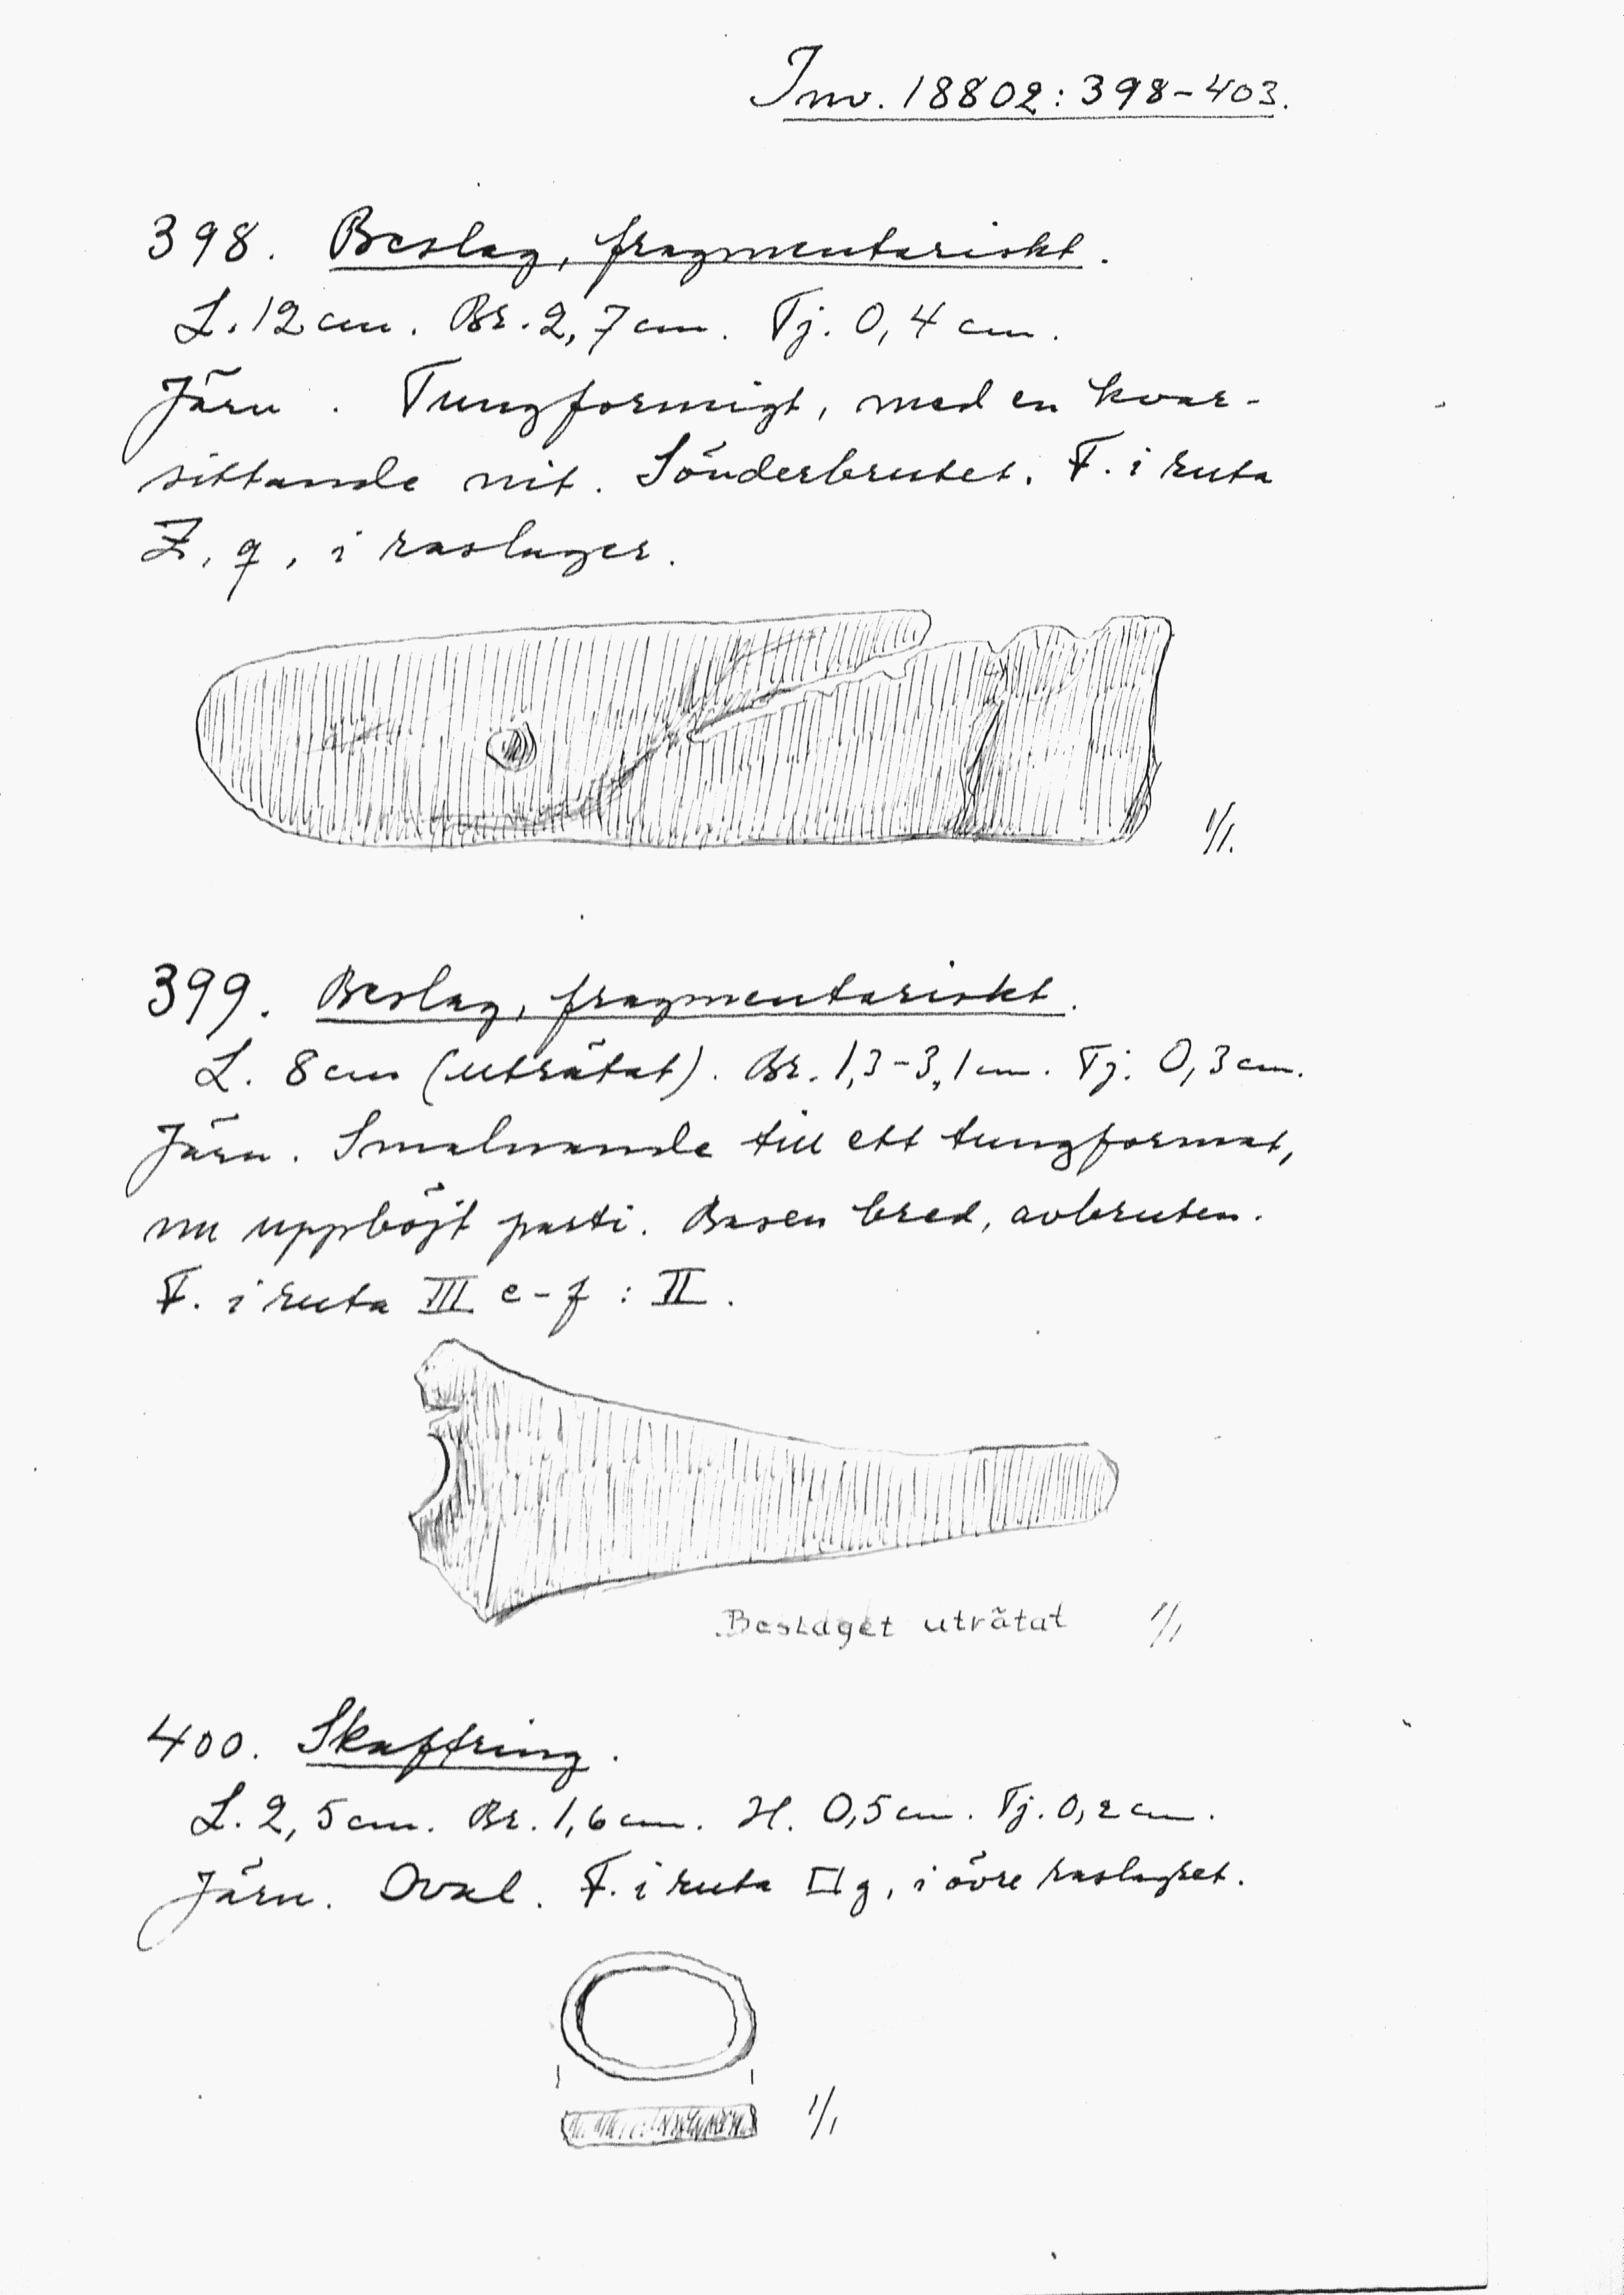 Inv. 18802:398-403.
398. Beslag, fragmentariskt.
L. 12 cm. Br. 2,7 cm. Tj. 0,4 cm.
Järn. Tungformigt, med en kvar-
sittande nit. Sönderbrutet. F. i ruta
Z, q, i raslager.
1/1.
399. Beslag, fragmentariskt.
L. 8 cm (uträtat). Br. 1,3-3,1 cm. Tj. 0,3 cm.
Järn. Smalnande till ett tungformat,
nu uppböjt parti. Basen bred, avbruten.
F. i ruta III e-f : II.
Beslaget uträtat 1/1
400. Skaftring.
L. 2,5 cm. Br. 1,6 cm. H. 0,5 cm. Tj. 0,2 cm.
Järn. Oval. F. i ruta II g, i övre raslagret.
1/1